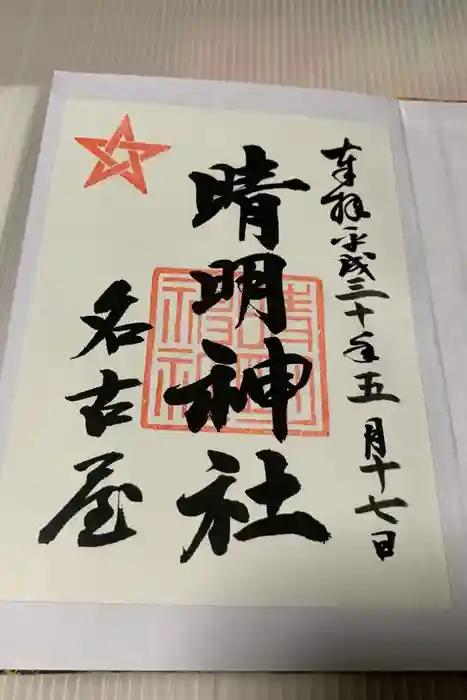 奉拝 平成三十年五月十七日
晴明神社
名古屋